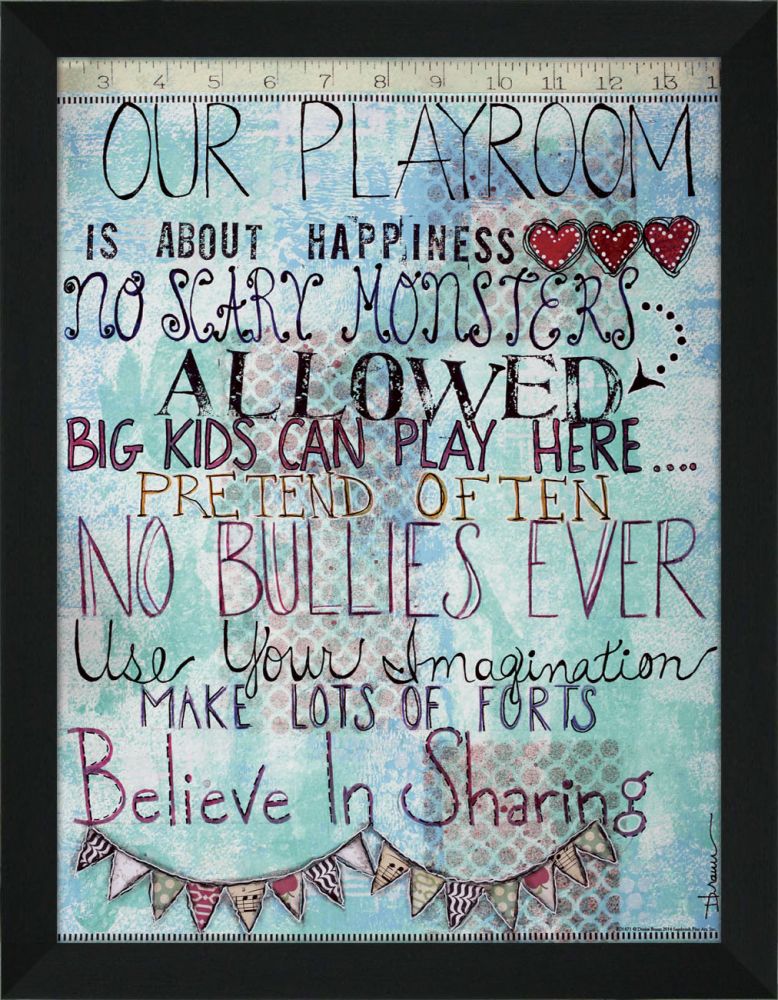 3 4 5 6 7 8 9 10 11 12 13 1
OUR PLAYROOM
IS ABOUT HAPPINESS
NO SCARY MONSTERS
ALLOWED
BIG KIDS CAN PLAY HERE....
PRETEND OFTEN
NO BULLIES EVER
Use Your Imagination
MAKE LOTS OF FORTS
Believe In Sharing